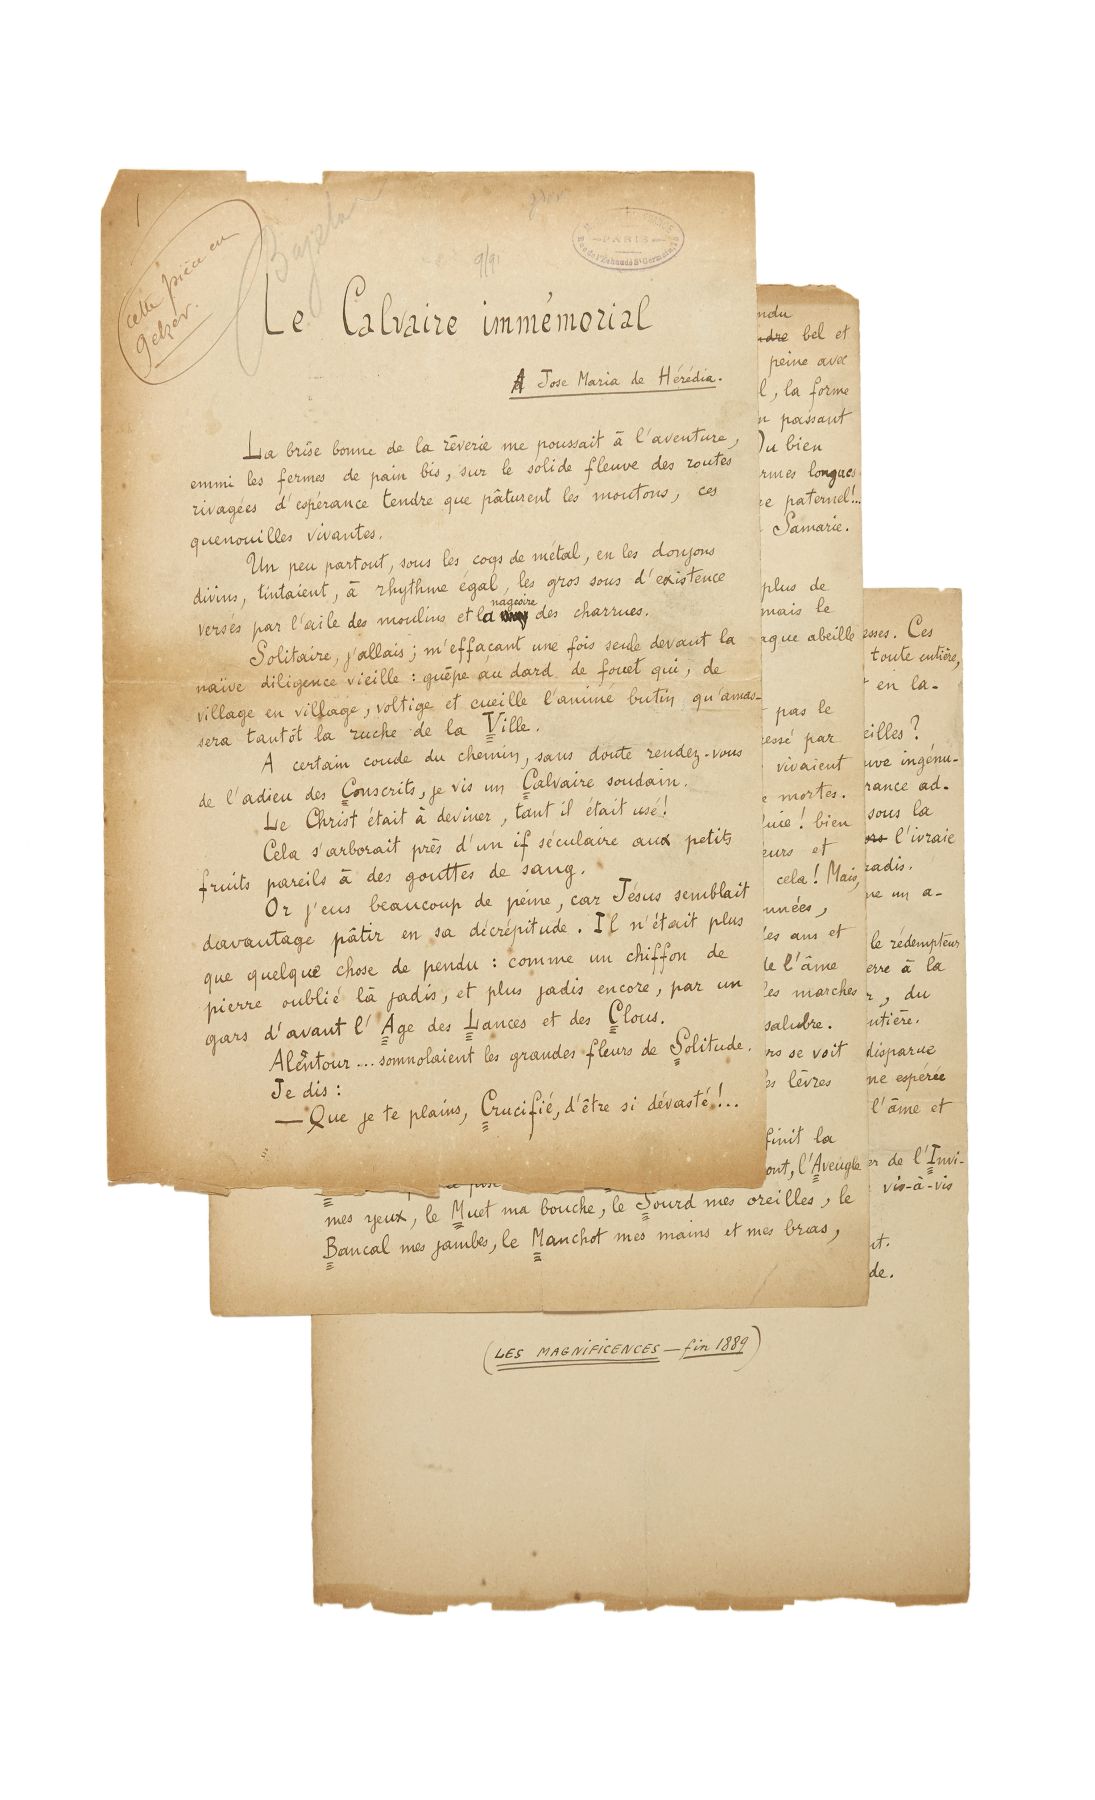 cette pièce en
gelzer.
Bajelar
9/91
PARIS
Rue de l'Échaudé St Germain, 15
Le Calvaire immémorial
A Jose Maria de Hérédia.
La brise bonne de la rêverie me poussait à l'aventure,
emmi les fermes de pain bis, sur le solide fleuve des routes
rivagées d'espérance tendre que pâturent les moutons, ces
quenouilles vivantes.
Un peu partout, sous les coqs de métal, en les donjons
divins, tintaient, à rhythme égal, les gros sous d'existence
nageoire
versés par l'aile des moulins et la des charrues.
Solitaire, j'allais ; m'effaçant une fois seule devant la
naïve diligence vieille : guêpe au dard de fouet qui, de
village en village, voltige et cueille l'anime butin qu'amas-
sera tantôt la ruche de la Ville.
A certain coude du chemin, sans doute rendez-vous
de l'adieu des Conscrits, je vis un Calvaire soudain.
Le Christ était à deviner, tant il était usé !
Cela s'arborait près d'un if séculaire aux petits
fruits pareils à des gouttes de sang.
Or j'eus beaucoup de peine, car Jésus semblait
davantage pâtir en sa décrépitude. Il n'était plus
que quelque chose de pendu : comme un chiffon de
pierre oublié là jadis, et plus jadis encore, par un
gars d'avant l'Age des Lances et des Clous.
Alentour ... somnolaient les grandes fleurs de Solitude.
Je dis :
— Que je te plains, Crucifié, d'être si dévasté !...
ndu
dre bel et
peine avec
l, la forme
n passant
Ou bien
rmes longues
e paternel !...
Samarie.
plus de
mais le
aque abeille
pas le
ressé par
vivaient
e mortes.
luie ! bien
eurs et
cela ! Mais,
nnées,
les ans et
de l'âme
les marches
salubre.
rs se voit
es lèvres
finit la
ont, l'Aveugle
mes yeux, le Muet ma bouche, le Sourd mes oreilles, le
Bancal mes jambes, le Manchot mes mains et mes bras,
esses. Ces
toute entière,
t en la-
eilles ?
uve ingénu-
rance ad-
sous la
ors l'ivraie
radis.
ne un a-
le rédempteur
erre à la
r, du
ntière.
disparue
ne espérée
l'âme et
er de l'Invi-
vis-à-vis
nt.
de.
(LES MAGNIFICENCES — fin 1889)